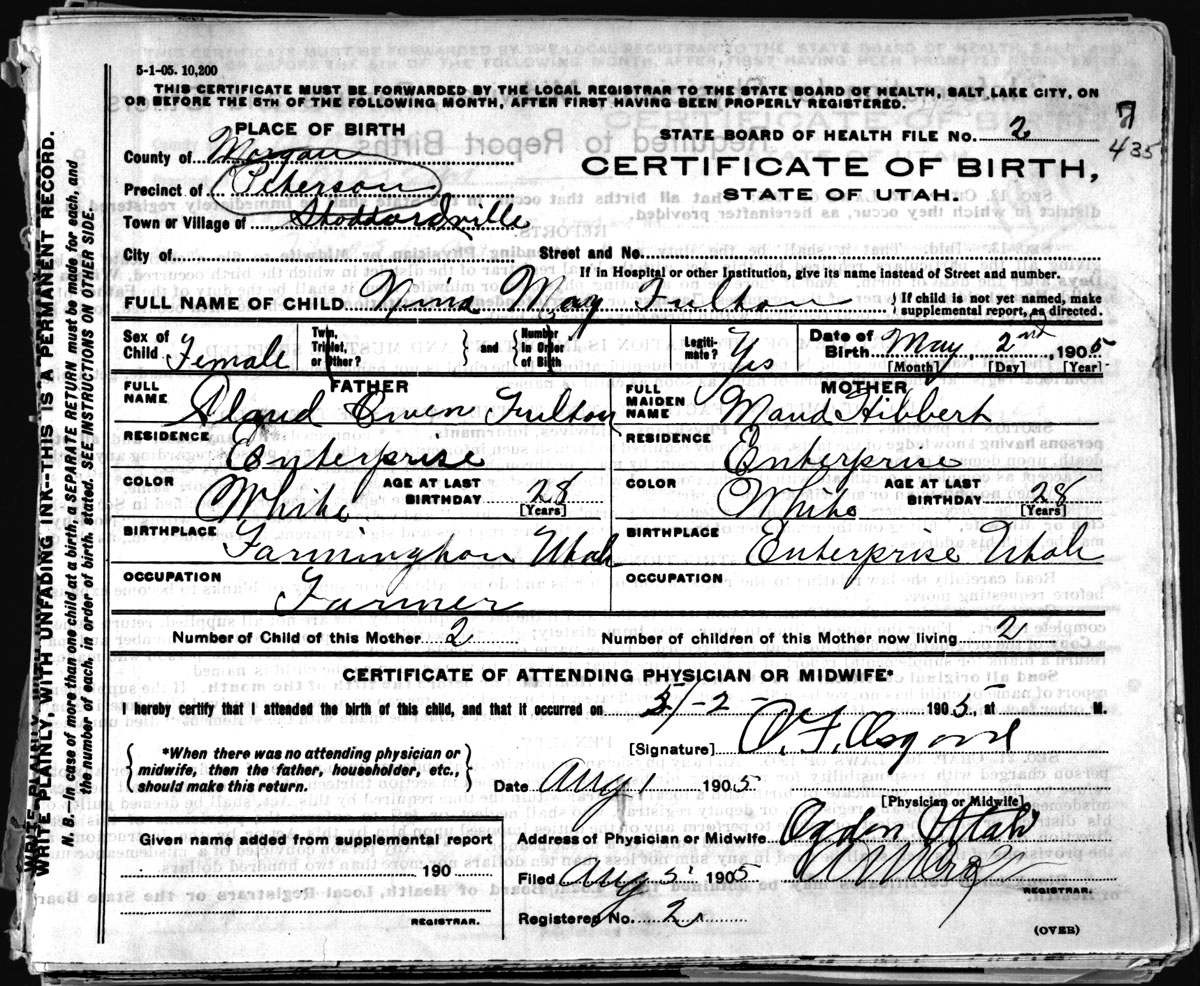 5-1-05. 10,200
THIS CERTIFICATE MUST BE FORWARDED BY THE LOCAL REGISTRAR TO THE STATE BOARD OF HEALTH, SALT LAKE CITY, ON
OR BEFORE THE 5TH OF THE FOLLOWING MONTH, AFTER FIRST HAVING BEEN PROPERLY REGISTERED.
PLACE OF BIRTH
STATE BOARD OF HEALTH FILE No. 2
7
435
County of Morgan
CERTIFICATE OF BIRTH,
Precinct of Peterson
STATE OF UTAH.
Town or Village of Stoddardville
City of
Street and No.
If in Hospital or other Institution, give its name instead of Street and number.
FULL NAME OF CHILD Nina May Fulton
If child is not yet named, make
supplemental report, as directed.
Sex of
Child Female
Twin,
Triplet,
or Other?
and
Number
in Order
of Birth
Legiti-
mate? Yes
Date of
Birth May, 2nd, 1905
[Month] [Day] [Year]
FATHER
FULL
NAME Owen Fulton
RESIDENCE Enterprise
COLOR White
AGE AT LAST
BIRTHDAY 28
[Years]
BIRTHPLACE Farmington Utah
OCCUPATION
Farmer
MOTHER
FULL
MAIDEN
NAME Maud Hibbert
RESIDENCE Enterprise
COLOR White
AGE AT LAST
BIRTHDAY 28
[Years]
BIRTHPLACE Enterprise Utah
OCCUPATION
Number of Child of this Mother 2
Number of children of this Mother now living 2
CERTIFICATE OF ATTENDING PHYSICIAN OR MIDWIFE*
I hereby certify that I attended the birth of this child, and that it occurred on 5/-2- 1905, at M.
*When there was no attending physician or
midwife, then the father, householder, etc.,
should make this return.
[Signature] O. F. Osgood
Date Aug 1 1905
[Physician or Midwife]
Given name added from supplemental report
190
REGISTRAR.
Address of Physician or Midwife Ogden Utah
Filed Aug 5 1905
REGISTRAR.
Registered No. 2
(OVER)
WRITE PLAINLY, WITH UNFADING INK--THIS IS A PERMANENT RECORD.
N. B. In case of more than one child at a birth, a SEPARATE RETURN must be made for each, and
the number of each, in order of birth, stated. SEE INSTRUCTIONS ON OTHER SIDE.